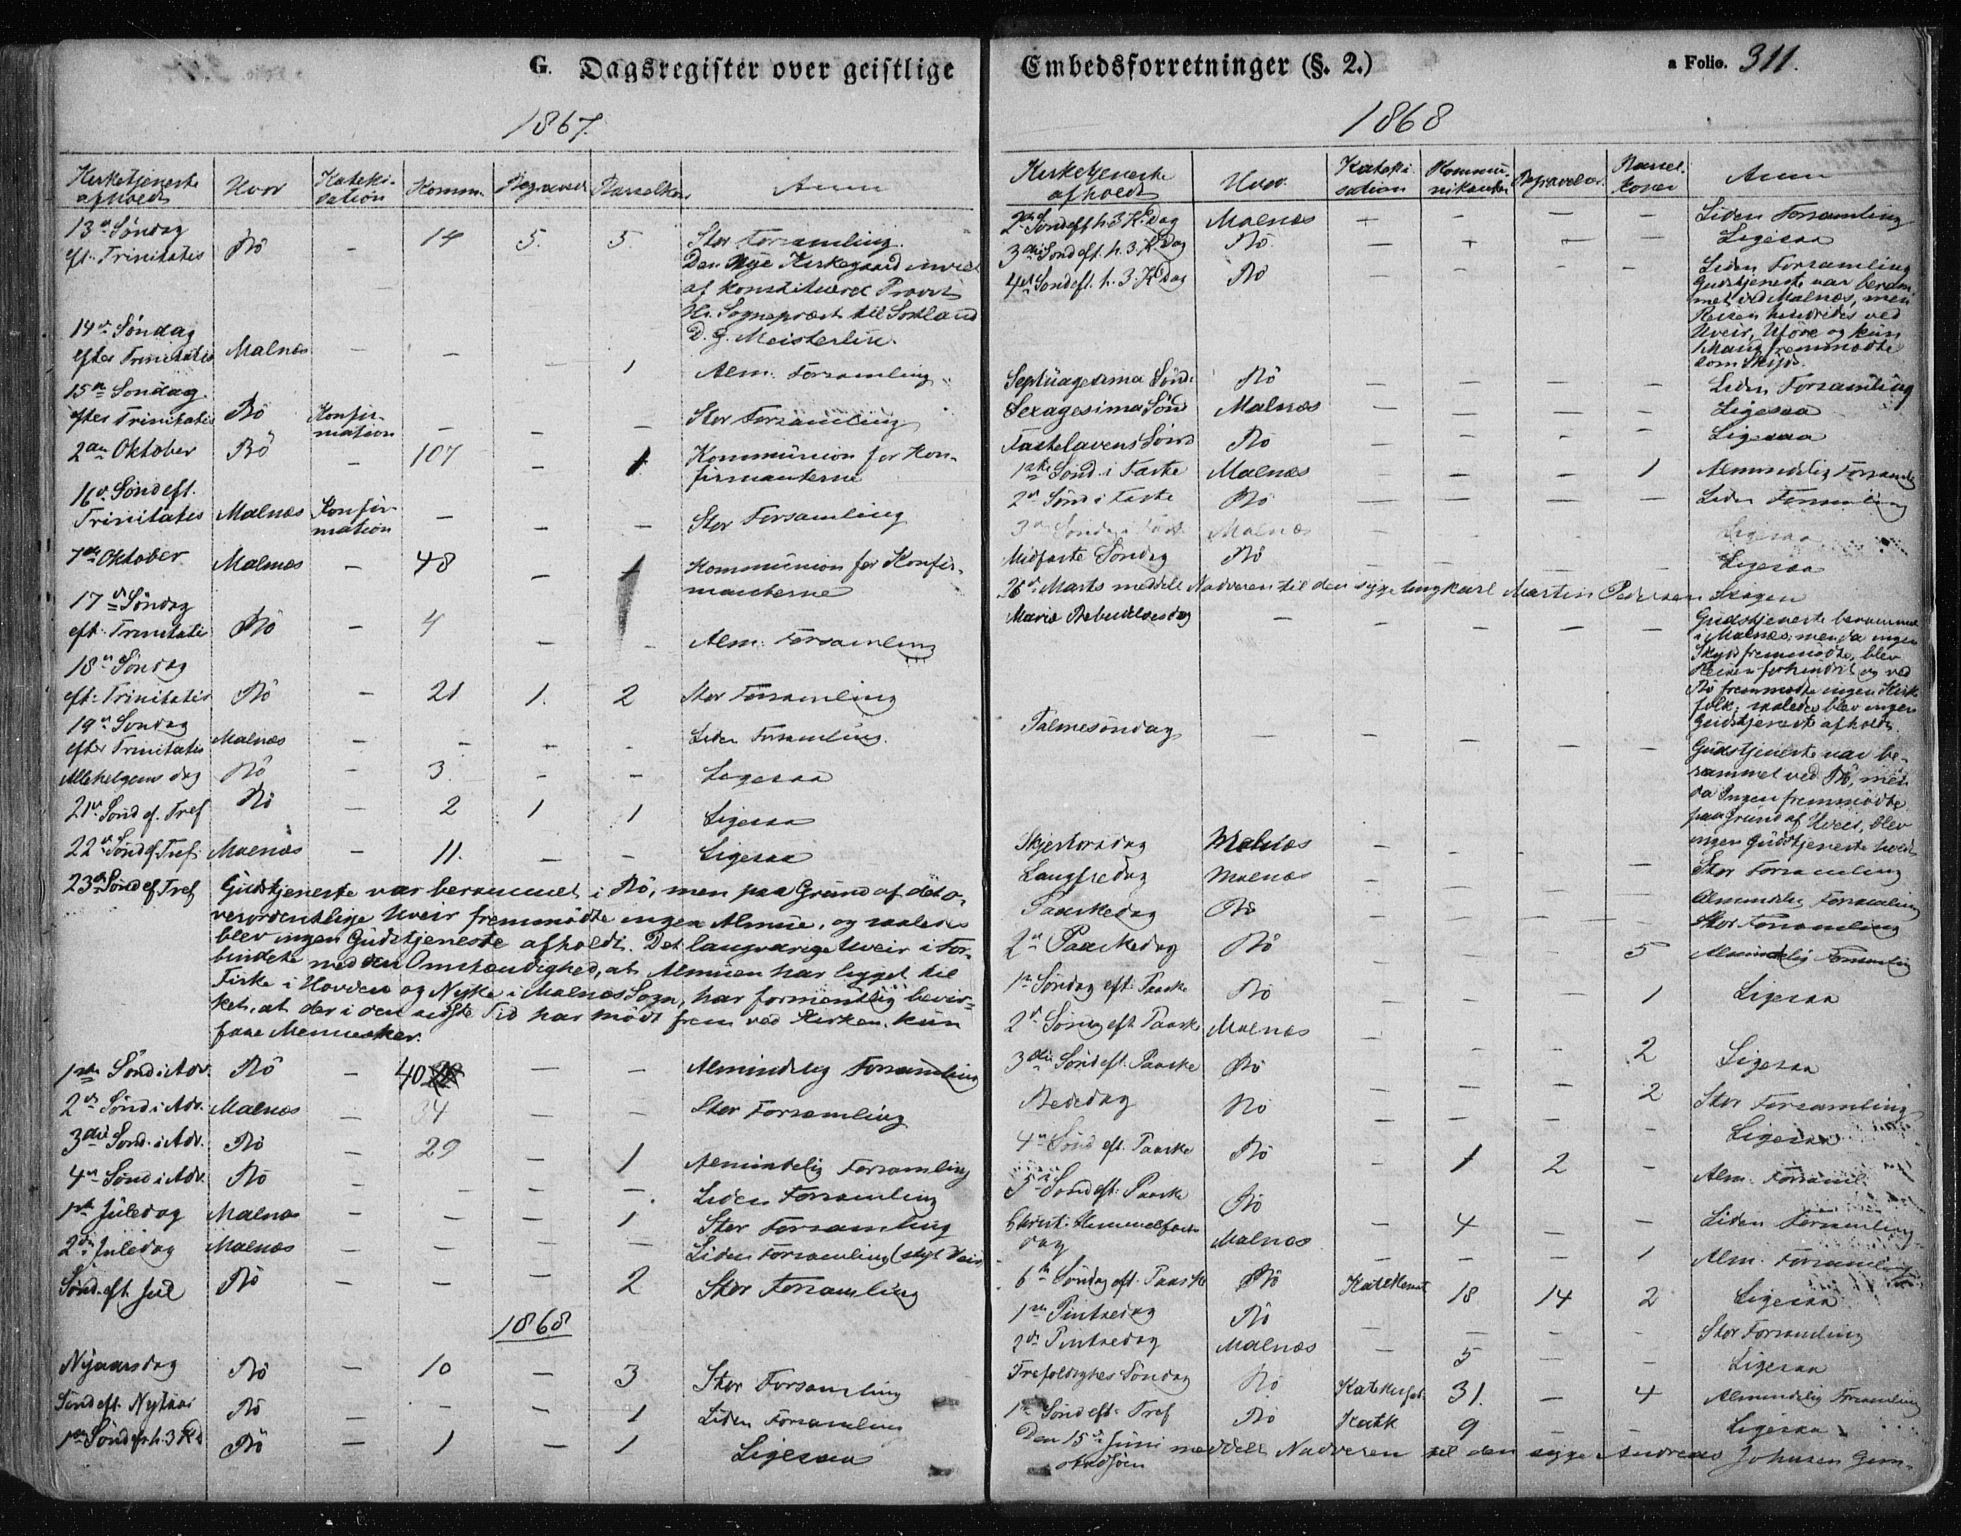 G. Dagsregister over geistlige
1867.
Kirketjeneste afholdt Hvor Kateki-sation Komm. Begravel Barselkon Anm
13de Søndag
eft. Trinitatis Bö - 14 5. 5. Stor Forsamling.
Den Nye Kirkegaard indviet
af konstitueret Provst
Hr. Sognepræst til Sortland
D. G. Meisterlin.
14de Søndag
efter Trinitatis Malnæs - - - 1 Alm. Forsamling
15de Søndag
efter Trinitatis Bö Konfir-mation - - - Stor Forsamling
2den Oktober Bö - 107 - 1 Kommunion for Kon-
firmanterne
16de Sönd eft.
Trinitatis Malnæs Konfir-mation - - - Stor Forsamling
7de Oktober Malnæs - 48 - 1 Kommunion for Konfir-
manterne
17de Søndag
eft. Trinitati Bö - 4 - - Alm. Forsamling
18de Søndag
eft. Trinitatis Bö - 21 1. 2 Stor Forsamling
19de Søndag
efter Trinitatis Malnæs - - - - Liden Forsamling.
Allehelgens dag Bö - 3 - - Ligesaa
21de Sönd ef. Tref Bö - 2 1 1 Ligesaa
22de Sönd ef. Tref Malnæs - 11. - - Ligesaa
23de Sönd ef Tref Gudstjeneste var berammet i Bö, men paa Grund af det o-
verordentlige Uveir fremmödte ingen Almue, og saaledes
blev ingen Gudstjeneste afholdt. Det langvarige Uveir i For-
bindelse med den Omstændighed, at Almuen har ligget til
Fiske i Hovden og Nykе i Malnæs Sogn, har formentlig bevir-
ket, at der i den sidste Tid har mödt frem ved Kirken kun
faae Mennesker.
1ste Sönd i Adv. Bö - 40 - - Almindelig Forsamling
2den Sönd i Adv. Malnæs - 34 - - Stor Forsamling
3die Sönd. i Adv. Bö - 29 - 1 Almindelig Forsamling
4de Sönd i Adv. Bö - - - - Liden Forsamling
1ste Juledag Malnæs - - - 1 Stor Forsamling
2den Juledag Malnæs - - - - Liden Forsamling (stygt Veir)
Sönd. eft Jul Bö - - - 2 Stor Forsamling
1868
Nyaarsdag Bö - 10 - 3 Stor Forsamling
Sönd eft. Nytaar Bö - - - 1 Liden Forsamling
1ste Sönd eft h. 3 K d Bö - 1 - 1 Ligesaa
Embedsforretninger (§. 2.)
a Folio. 311.
1868
Kirketjeneste afholdt Hvor Kateki-sation Kommu-nikanter Begravelser Barsel-koner Anm
2den Sönd eft h. 3 K. Dag Malnæs - - - - Liden Forsamling
3die Sönd eft. h. 3. K Dag Bö - - - - Ligesaa
4de Sönd eft. h. 3. K Dag Bö - - - - Liden Forsamling
Gudstjeneste var beram-
met ved Malnæs, men
Reisen hindredes ved
Uveir, Uföre og kun
1 Mand fremmödte
som Skyds.
Septuagesima Sönd. Bö - - - - Liden Forsamling
Sexagesima Sönd Malnæs - - - - Ligesaa
Fastelavens Sönd Bö - - - - Ligesaa
1ste Sönd. i Faste Malnæs - - - 1 Almindelig Forsamling
2den Sönd i Faste Bö - - - - Liden Forsamling
3die Sönd i Fast. Malnæs - - - - Ligesaa
Midfaste Söndag Bö - - - - Ligesaa
26de Marts meddelt Nadveren til den syge Ungkarl Martin Pedersen Skagen
Mariæ Bebudelsesdag - - - - - Gudstjeneste berammet
i Malnæs, men da ingen
Skyds fremmödte, blev
Reisen forhindret og ved
Bö fremmödte ingen Kirke
folk, saaledes blev ingen
Gudstjeneste afholdt.
Palmesöndag - - - - - Gudstjeneste var be-
rammet ved Bö, men
da Ingen fremmödte
paa Grund af Uveir, blev
ingen Gudstjeneste holdt
Skjertorsdag Malnæs - - - - Stor Forsamling
Langfredag Malnæs - - - - Almindelig Forsamling
Paaskedag Bö - - - - Stor Forsamling
2den Paaskedag Bö - - - 5 Almindelig Forsamling
1ste Söndag eft. Paaske Bö - - - 1 Ligesaa
2den Söndag eft Paaske Malnæs - - - 2 Ligesaa
3die Sönd eft. Paaske Bö - - - 2 Stor Forsamling
Bededag Bö - - - - Ligesaa
4de Sönd eft. Paaske Bö - 1 2 - Alm. Forsaml.
5te Sönd eft. Paaske Bö - 4 - - Liden Forsamling
Christi Himmelfarts
dag Malnæs - - - 1 Alm. Forsamling
6te Söndag eft. Paaske Bö Katekisat 18 14 2 Ligesaa
1ste Pintsedag Bö - - - - Stor Forsamling
2den Pintsedag Malnæs - 5 - - Ligesaa
Trefoldigheds Söndag Bö Katekisat. 31. - 4 Almindelig Forsamling
1ste Sönd eft. Tref Bö Katk 9 - - Ligesaa
Den 15de Juni meddelt Nadveren til den syge Andreas Johnsen Guvn-
stadsöen